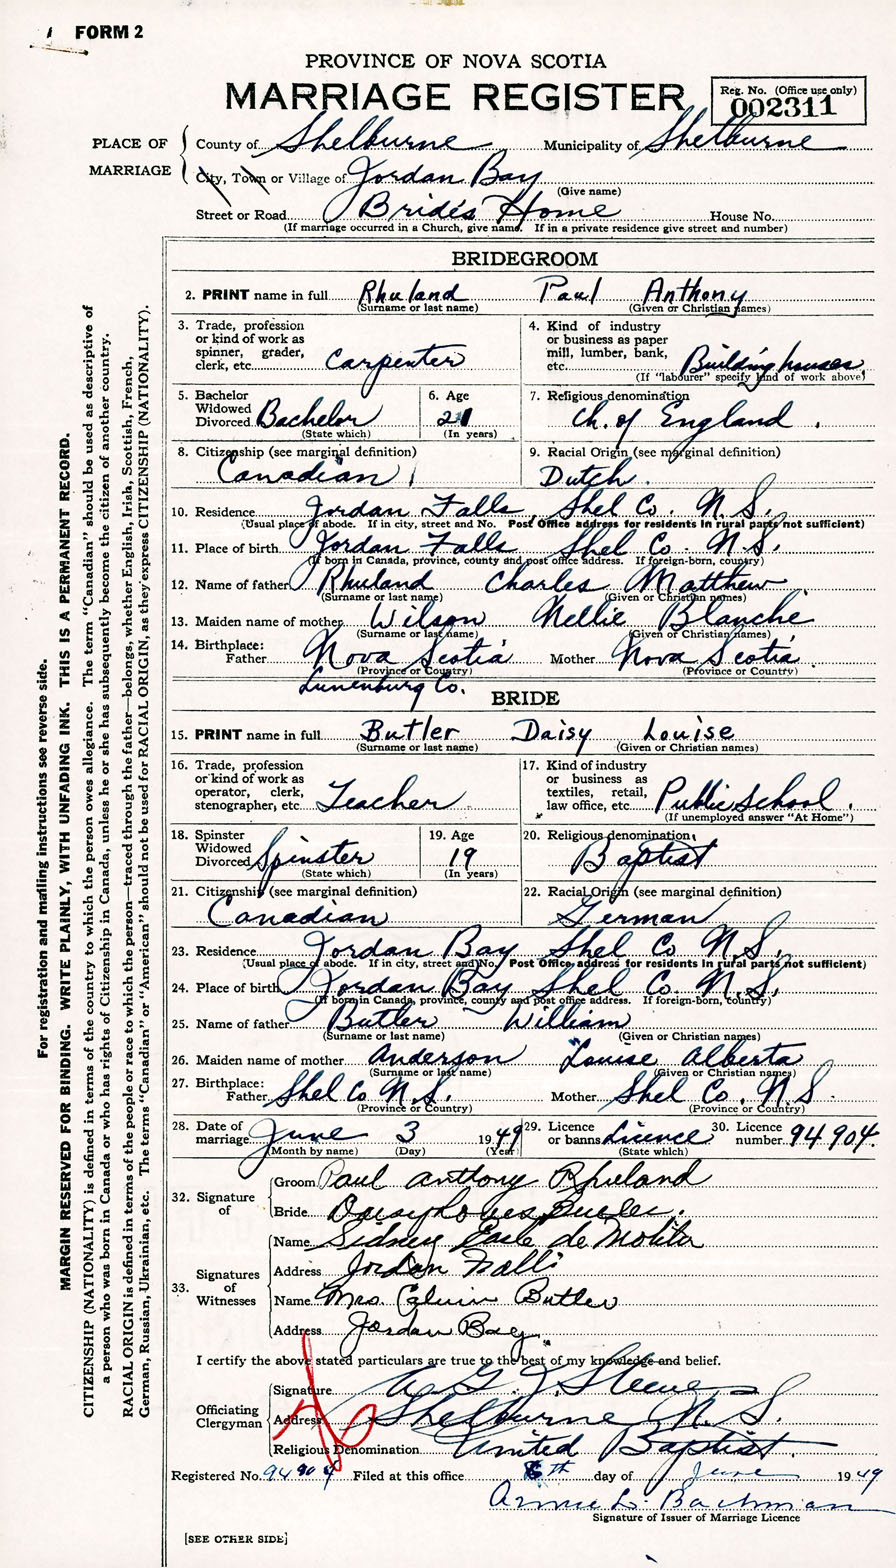 FORM 2
PROVINCE OF NOVA SCOTIA
MARRIAGE REGISTER
Reg. No. (Office use only)
002311
PLACE OF MARRIAGE
County of Shelburne Municipality of Shelburne
City, Town or Village of Jordan Bay
(Give name)
Street or Road Bride's Home House No.
(If marriage occurred in a Church, give name. If in a private residence give street and number)
BRIDEGROOM
2. PRINT name in full Rhuland Paul Anthony
(Surname or last name) (Given or Christian names)
3. Trade, profession or kind of work as spinner, grader, clerk, etc. Carpenter
4. Kind of industry or business as paper mill, lumber, bank, etc. Building houses
(If "labourer" specify kind of work above)
5. Bachelor Widowed Divorced Bachelor
(State which)
6. Age 21
(In years)
7. Religious denomination Ch. of England.
8. Citizenship (see marginal definition)
Canadian
9. Racial Origin (see marginal definition)
Dutch.
10. Residence Jordan Falls, Shel Co. N.S.
(Usual place of abode. If in city, street and No. Post Office address for residents in rural parts not sufficient)
11. Place of birth Jordan Falls Shel Co. N.S.
(If born in Canada, province, county and post office address. If foreign-born, country)
12. Name of father Rhuland Charles Matthew
(Surname or last name) (Given or Christian names)
13. Maiden name of mother Wilson Nellie Blanche
(Surname or last name) (Given or Christian names)
14. Birthplace: Father Nova Scotia Mother Nova Scotia
(Province or Country) (Province or Country)
Lunenburg Co.
BRIDE
15. PRINT name in full Butler Daisy Louise
(Surname or last name) (Given or Christian names)
16. Trade, profession or kind of work as operator, clerk, stenographer, etc. Teacher
17. Kind of industry or business as textiles, retail, law office, etc. Public School.
(If unemployed answer "At Home")
18. Spinster Widowed Divorced Spinster
(State which)
19. Age 19
(In years)
20. Religious denomination
Baptist
21. Citizenship (see marginal definition)
Canadian
22. Racial Origin (see marginal definition)
German
23. Residence Jordan Bay Shel Co N.S.
(Usual place of abode. If in city, street and No. Post Office address for residents in rural parts not sufficient)
24. Place of birth Jordan Bay Shel Co. N.S.
(If born in Canada, province, county and post office address. If foreign-born, country)
25. Name of father Butler William
(Surname or last name) (Given or Christian names)
26. Maiden name of mother Anderson Louise Alberta
(Surname or last name) (Given or Christian names)
27. Birthplace: Father Shel Co N.S. Mother Shel Co. N.S.
(Province or Country) (Province or Country)
28. Date of marriage June 3 1949
(Month by name) (Day) (Year)
29. Licence or banns Licence
(State which)
30. Licence number 94904.
32. Signature of
Groom Paul Anthony Rhuland
Bride Daisy Louise Butler.
33. Signatures of Witnesses
Name Sidney Earle de Molitor
Address Jordan Falls
Name Mrs. Calvin Butler
Address Jordan Bay.
I certify the above stated particulars are true to the best of my knowledge and belief.
Officiating Clergyman
Signature
Address Shelburne N.S.
Religious Denomination United Baptist.
Registered No. 94904 Filed at this office 6th day of June 1949
Bachman
Signature of Issuer of Marriage Licence
[SEE OTHER SIDE]
For registration and mailing instructions see reverse side.
MARGIN RESERVED FOR BINDING. WRITE PLAINLY, WITH UNFADING INK. THIS IS A PERMANENT RECORD.
CITIZENSHIP (NATIONALITY) is defined in terms of the country to which the person owes allegiance. The term "Canadian" should be used as descriptive of
a person who was born in Canada or who has rights of Citizenship in Canada, unless he or she has subsequently become the citizen of another country.
RACIAL ORIGIN is defined in terms of the people or race to which the person—traced through the father—belongs, whether English, Irish, Scottish, French,
German, Russian, Ukrainian, etc. The terms "Canadian" or "American" should not be used for RACIAL ORIGIN, as they express CITIZENSHIP (NATIONALITY).